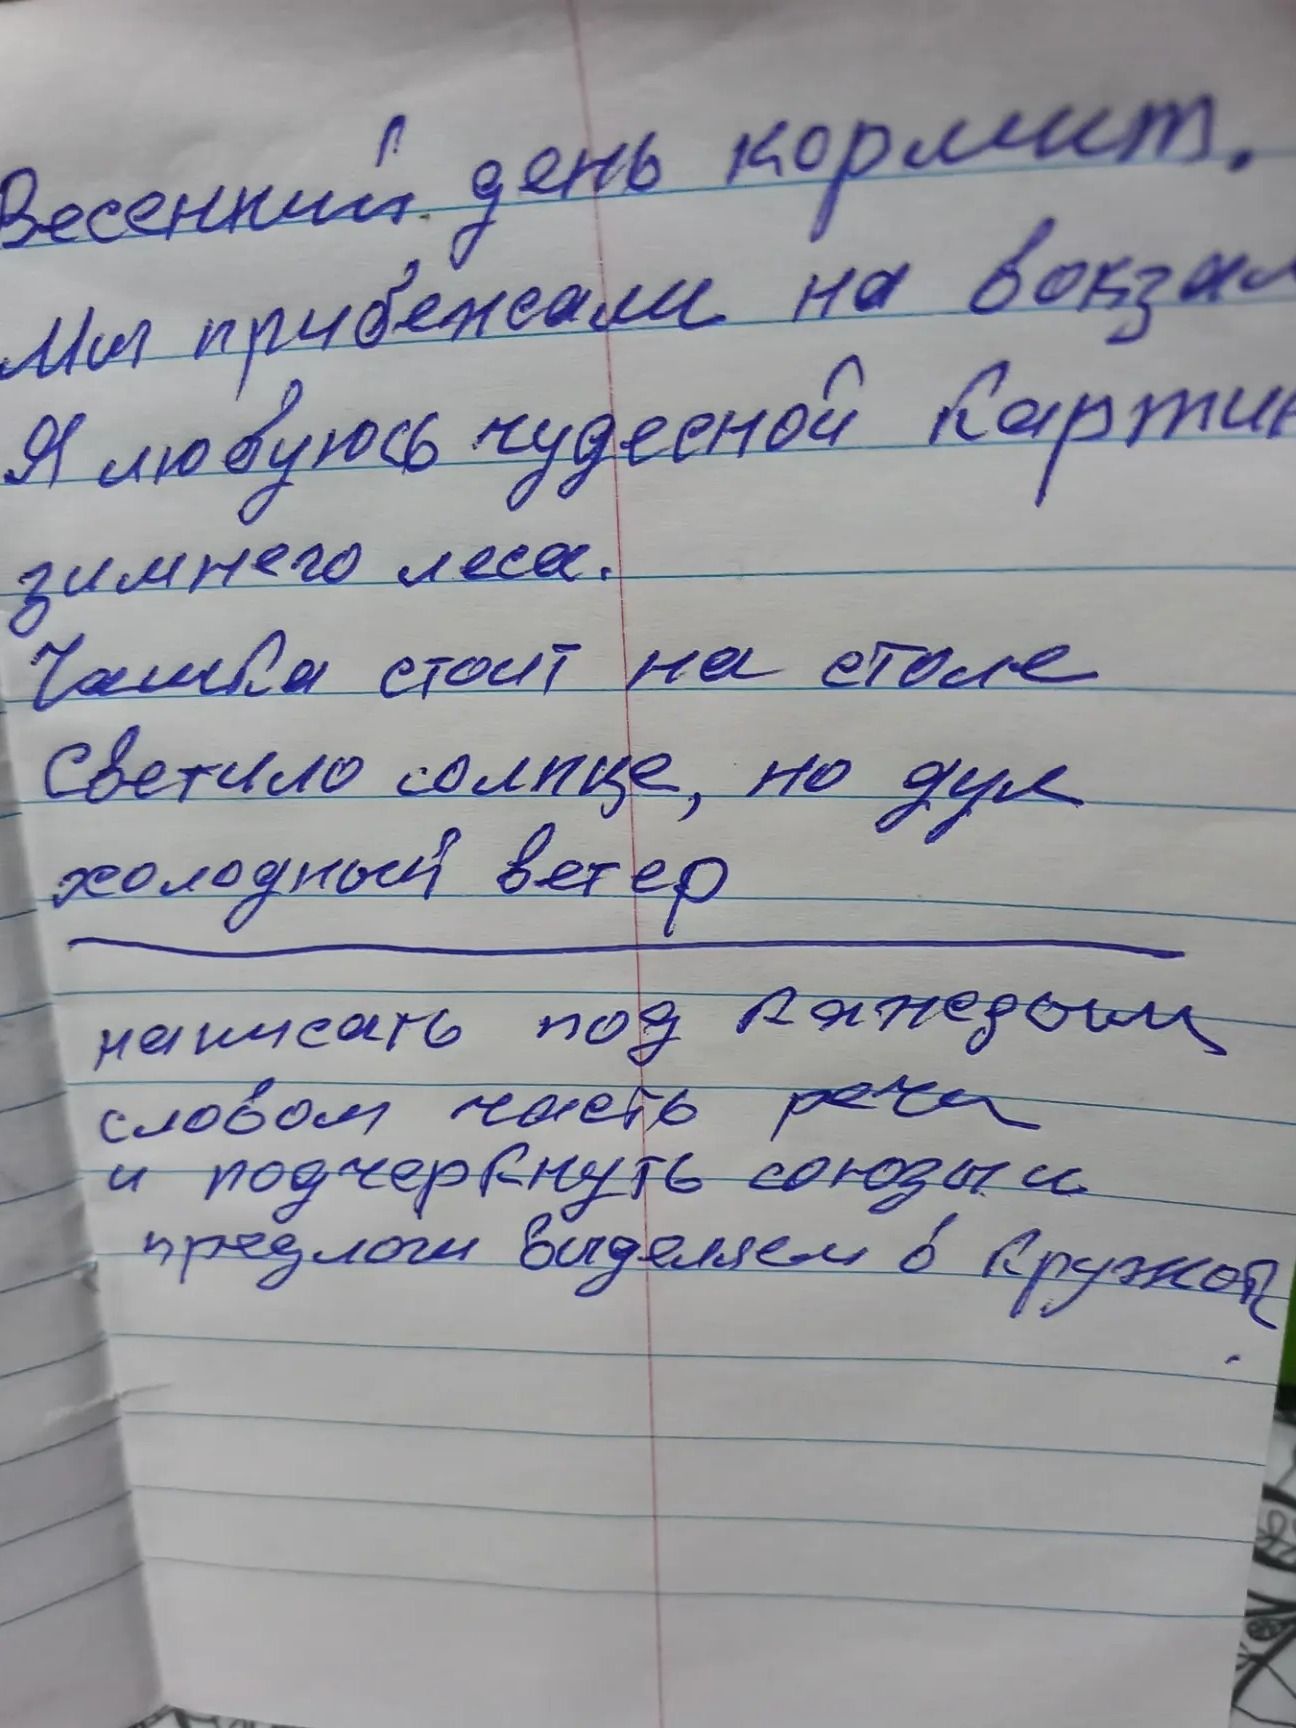 Весенний день кормит.
Мы прибежали на вокзал
Я любуюсь чудесной картин
зимнего леса.
Чашка стоит на столе
Светило солнце, но дул
холодный ветер
написать под каждым
словом часть речи
и подчеркнуть союзы и
предлоги выделяем в кружок